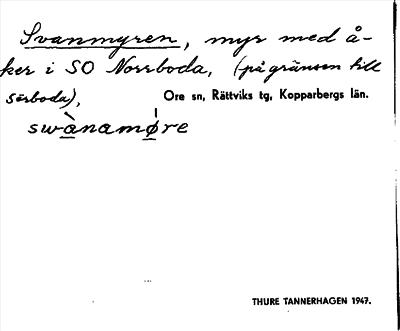 Svanmyren, myr med å-
ker i SO Norrboda, (på gränsen till
Sörboda),
Ore sn, Rättviks tg, Kopparbergs län.
swànamǿre
THURE TANNERHAGEN 1947.